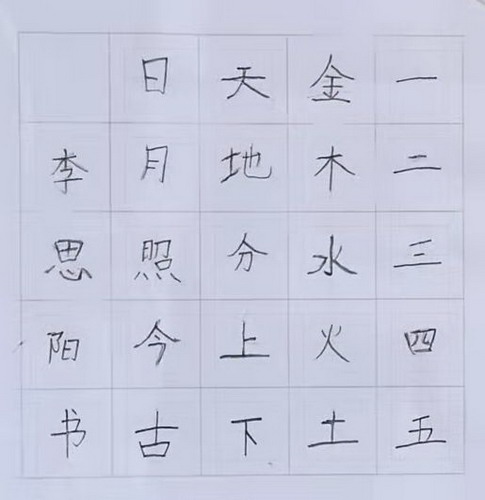 一二三四五
金木水火土
天地分上下
日月照今古
李思阳书